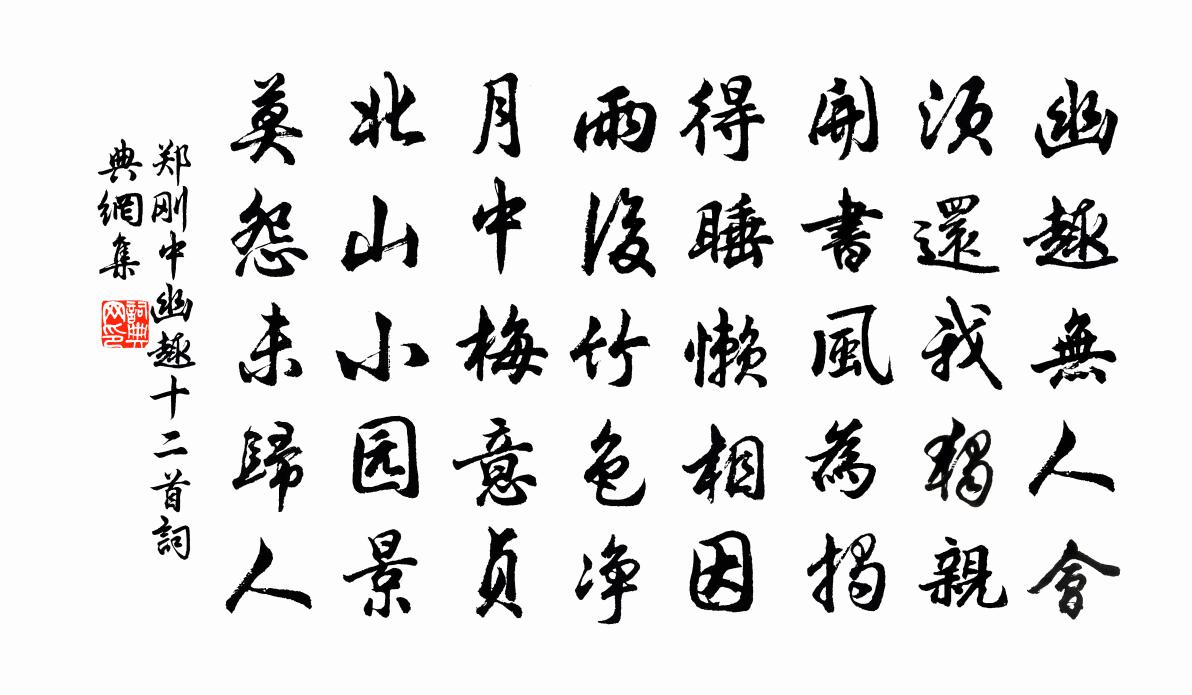 幽趣無人會
須還我獨親
開書風為揭
得睡懶相因
雨後竹色净
月中梅意貞
北山小园景
莫怨未歸人
郑刚中幽趣十二首詞
典網集
詞典
网印